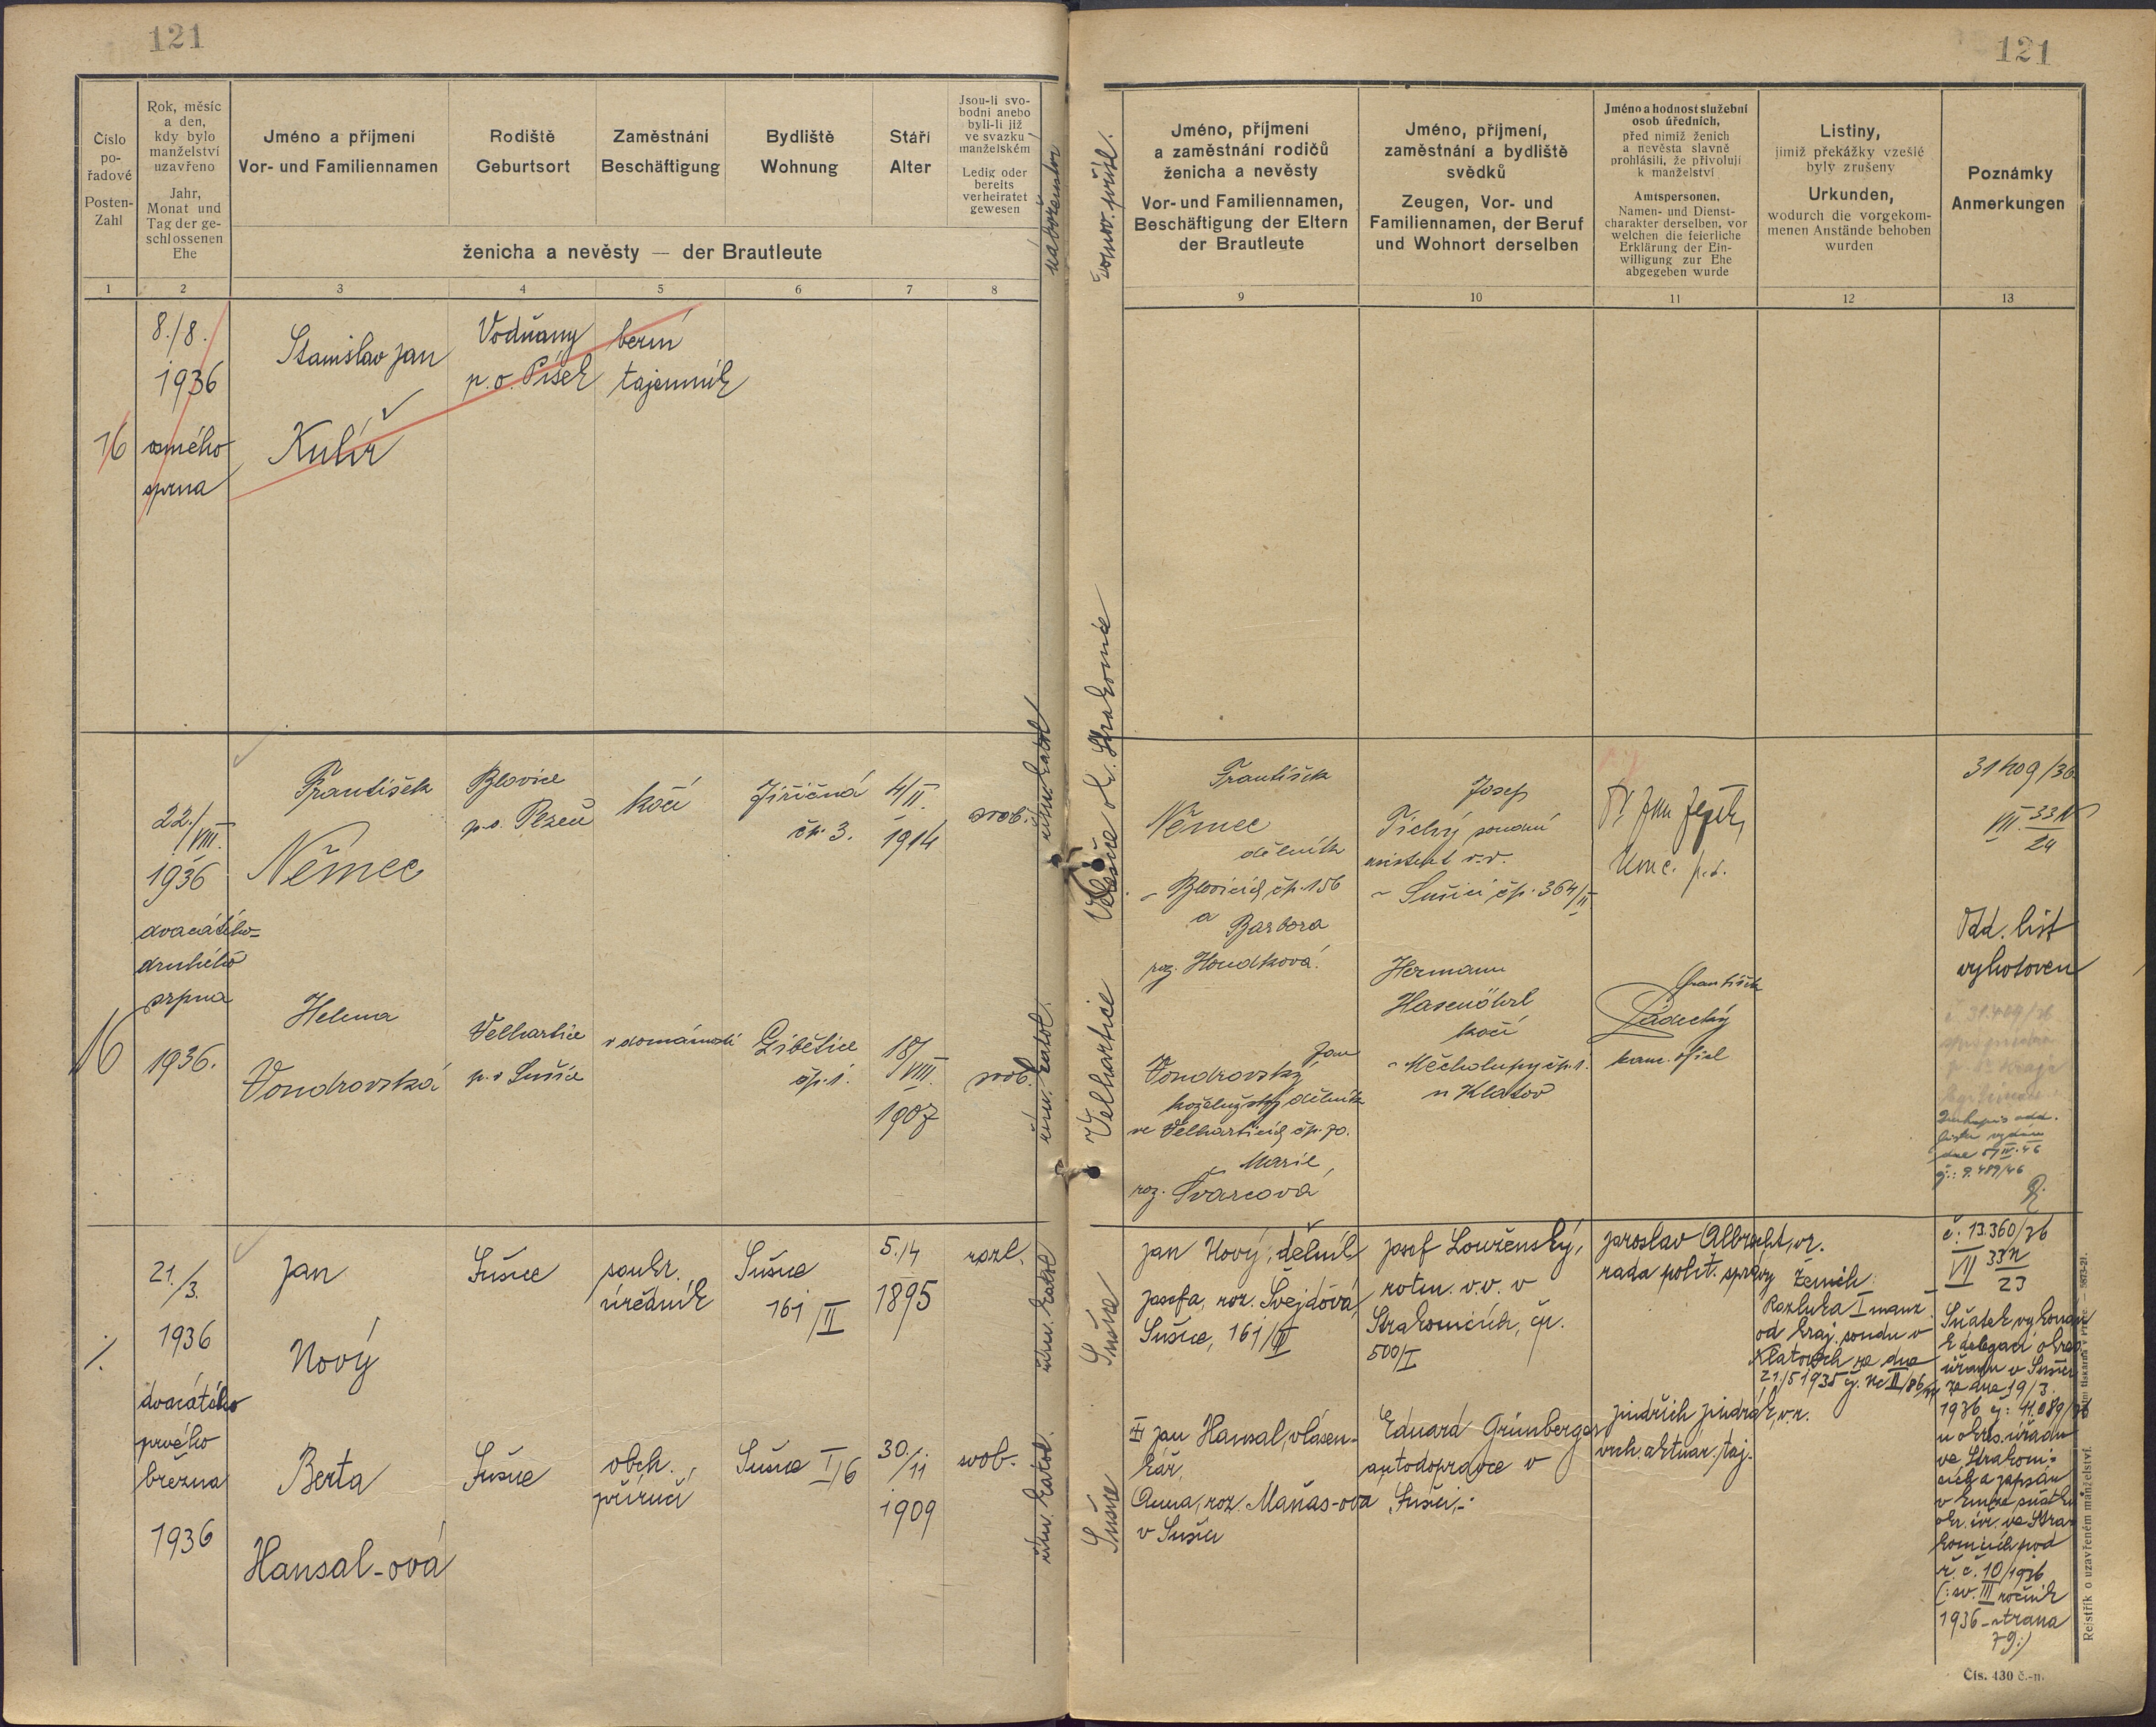 121
121
Číslo po-řadové
Posten-Zahl
Rok, měsíc
a den,
kdy bylo
manželství
uzavřeno
Jahr,
Monat und
Tag der ge-
schlossenen
Ehe
Jméno a příjmení
Vor- und Familiennamen
Rodiště
Geburtsort
Zaměstnání
Beschäftigung
Bydliště
Wohnung
Stáří
Alter
Jsou-li svo-
bodni anebo
byli-li již
ve svazku
manželském
Ledig oder
bereits
verheiratet
gewesen
ženicha a nevěsty — der Brautleute
náboženství
domov. přísl.
Jméno, příjmení
a zaměstnání rodičů
ženicha a nevěsty
Vor- und Familiennamen,
Beschäftigung der Eltern
der Brautleute
Jméno, příjmení,
zaměstnání a bydliště
svědků
Zeugen, Vor- und
Familiennamen, der Beruf
und Wohnort derselben
Jméno a hodnost služební
osob úředních,
před nimiž ženich
a nevěsta slavně
prohlásili, že přivolují
k manželství
Amtspersonen,
Namen- und Dienst-
charakter derselben, vor
welchen die feierliche
Erklärung der Ein-
willigung zur Ehe
abgegeben wurde
Listiny,
jimiž překážky vzešlé
byly zrušeny
Urkunden,
wodurch die vorgekom-
menen Anstände behoben
wurden
Poznámky
Anmerkungen
1 2 3 4 5 6 7 8 9 10 11 12 13
16
8./8.
1936
osmého
srpna
Stanislav Jan
Kulíř
Vodňany
p. o. Písek
berní
tajemník
16
22./VIII.
1936
dvacátého-
druhého
srpna
1936.
František
Němec
Blovice
p. o. Plzeň
kočí
Jiřičná
čp. 3.
4/II.
1914
svob.
řím. katol.
František
Němec
dělník
v Blovicích čp. 156
a Barbora
roz. Houdková.
Josef
Tichý soudní
asistent v.v.
v Sušici čp. 364/II
Odd. list
vyhotoven
31409/36
VII 33N
24
Helena
Vondrovská
Velhartice
p. o. Sušice
v domácnosti
čp. 1.
18/VIII.
1907
svob.
řím. katol.
Velhartice
Jan
Vondrovský
koželužský dělník
ve Velharticích čp. 70.
Marie,
roz. Švarcová
Hermann
Hasenöhrl
kočí
v Měcholupy čp. 1.
u Klatov
František
Sádecký
kanc. ofic.
dne 5/IV. 46
č.: 9.489/46
1.
21./3.
1936
dvacátého
prvého
března
1936
Jan
Nový
Sušice
soukr.
úředník
Sušice
161/II
5./4
1895
rozl.
řím. katol.
Sušice
Jan Nový, dělník
Josefa, roz. Švejdová,
Sušice, 161/II
Josef Louženský,
rotm. v.v. v
Strakonicích, čp.
500/I
Jaroslav Albrecht, vr.
rada polit. správy
Ženich:
Rozluka I manž.
od kraj. soudu v
Klatovech ze dne
21/5 1935
č: 13.360/36
VII 33N
23
Sňatek vykonán
k delegaci okres.
úřadu v Sušici
ze dne 19/3.
1936 čj: 11.089/36
u okres. úřadu
ve Strakoni-
cích a zapsán
v knize sňatků
okr. úř. ve Stra-
konicích pod
ř. č. 10/1936
(: sv. III ročník
1936 - strana
79:)
Berta
Hansal-ová
Sušice
obch.
příručí
Sušice I/6
30./11
1909
svob.
řím. katol.
Sušice
Jan Hansal, vlásen-
kář,
Anna, roz. Maňas-ova
v Sušici
Eduard Grünberger
autodopravce v
Sušici.-
Jindřich Jindrák, v.r.
vrch. aktuár. taj.
Rejstřík o uzavřeném manželství.
Čís. 430 č.-n.